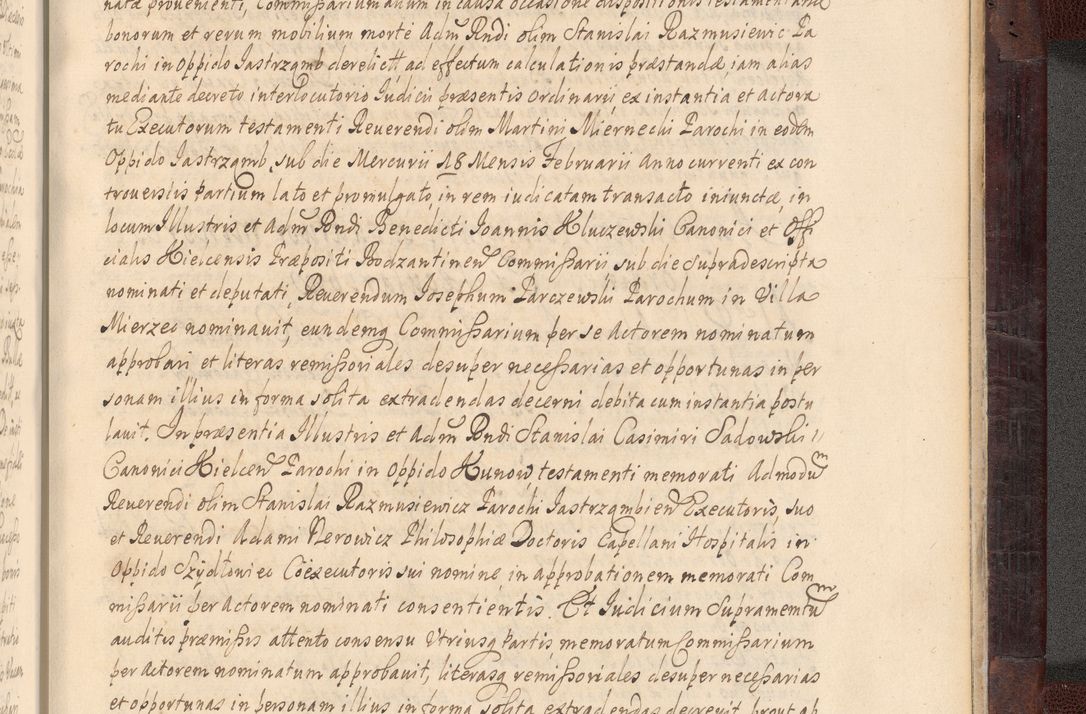 natæ provenienti, Commissarium alium in causa occasione dispositionis testamentariæ
bonorum et rerum mobilium morte Adm Rndi olim Stanislai Razmusiewic Pa
rochi in Oppido Jastrząmb derelictt ad effectum calculationis præstandæ, iam alias
mediante decreto interlocutorio Judicii præsentis ordinarii ex instantia et actora
tu Executorum testamenti Reverendi olim Martini Miernecki Parochi in eodm
Oppido Jastrząmb, sub die Mercurii 18 Mensis Februarii anno currenti ex con
troversiis partium lato et promulgato, in rem iudicatam transacto iniunctæ, in
locum Illustris et Adm Rndi Benedicti Joannis Kluczewski Canonici et Offi
cialis Kielcensis Præpositi Bodzantinen Commissarii sub die supradescripta
nominati et deputati, Reverendum Josephum Parczewski Parochum in Villa
Mierzec nominavit, eundemq Commissarium per se Actorem nominatum
approbari et literas remissoriales desuper necessarias et opportunas in per
sonam illius in forma solita extradendas decerni debita cum instantia postu
lavit. In præsentia Illustris et Adm Rndi Stanislai Casimiri Sadowski
Canonici Kielcen Parochi in Oppido Kunow testamenti memorati Admodum
Reverendi olim Stanislai Razmusiewicz Parochi Jastrząmbien Executoris, suo
et Reverendi Adami Nerowicz Philosophiæ Doctoris Capellani Hospitalis in
Oppido Szydłowiec Coexecutoris sui nomine in approbationem memorati Com
missarii per Actorem nominati consentientis. Et Judicium Supramemtum
auditis præmissis attento consensu utriusq partis memoratum Commissarium
per Actorem nominatum approbavit, literasq remissoriales desuper necessarias
et opportunas in personam illius in forma solita extradendas decrevit, prout ab